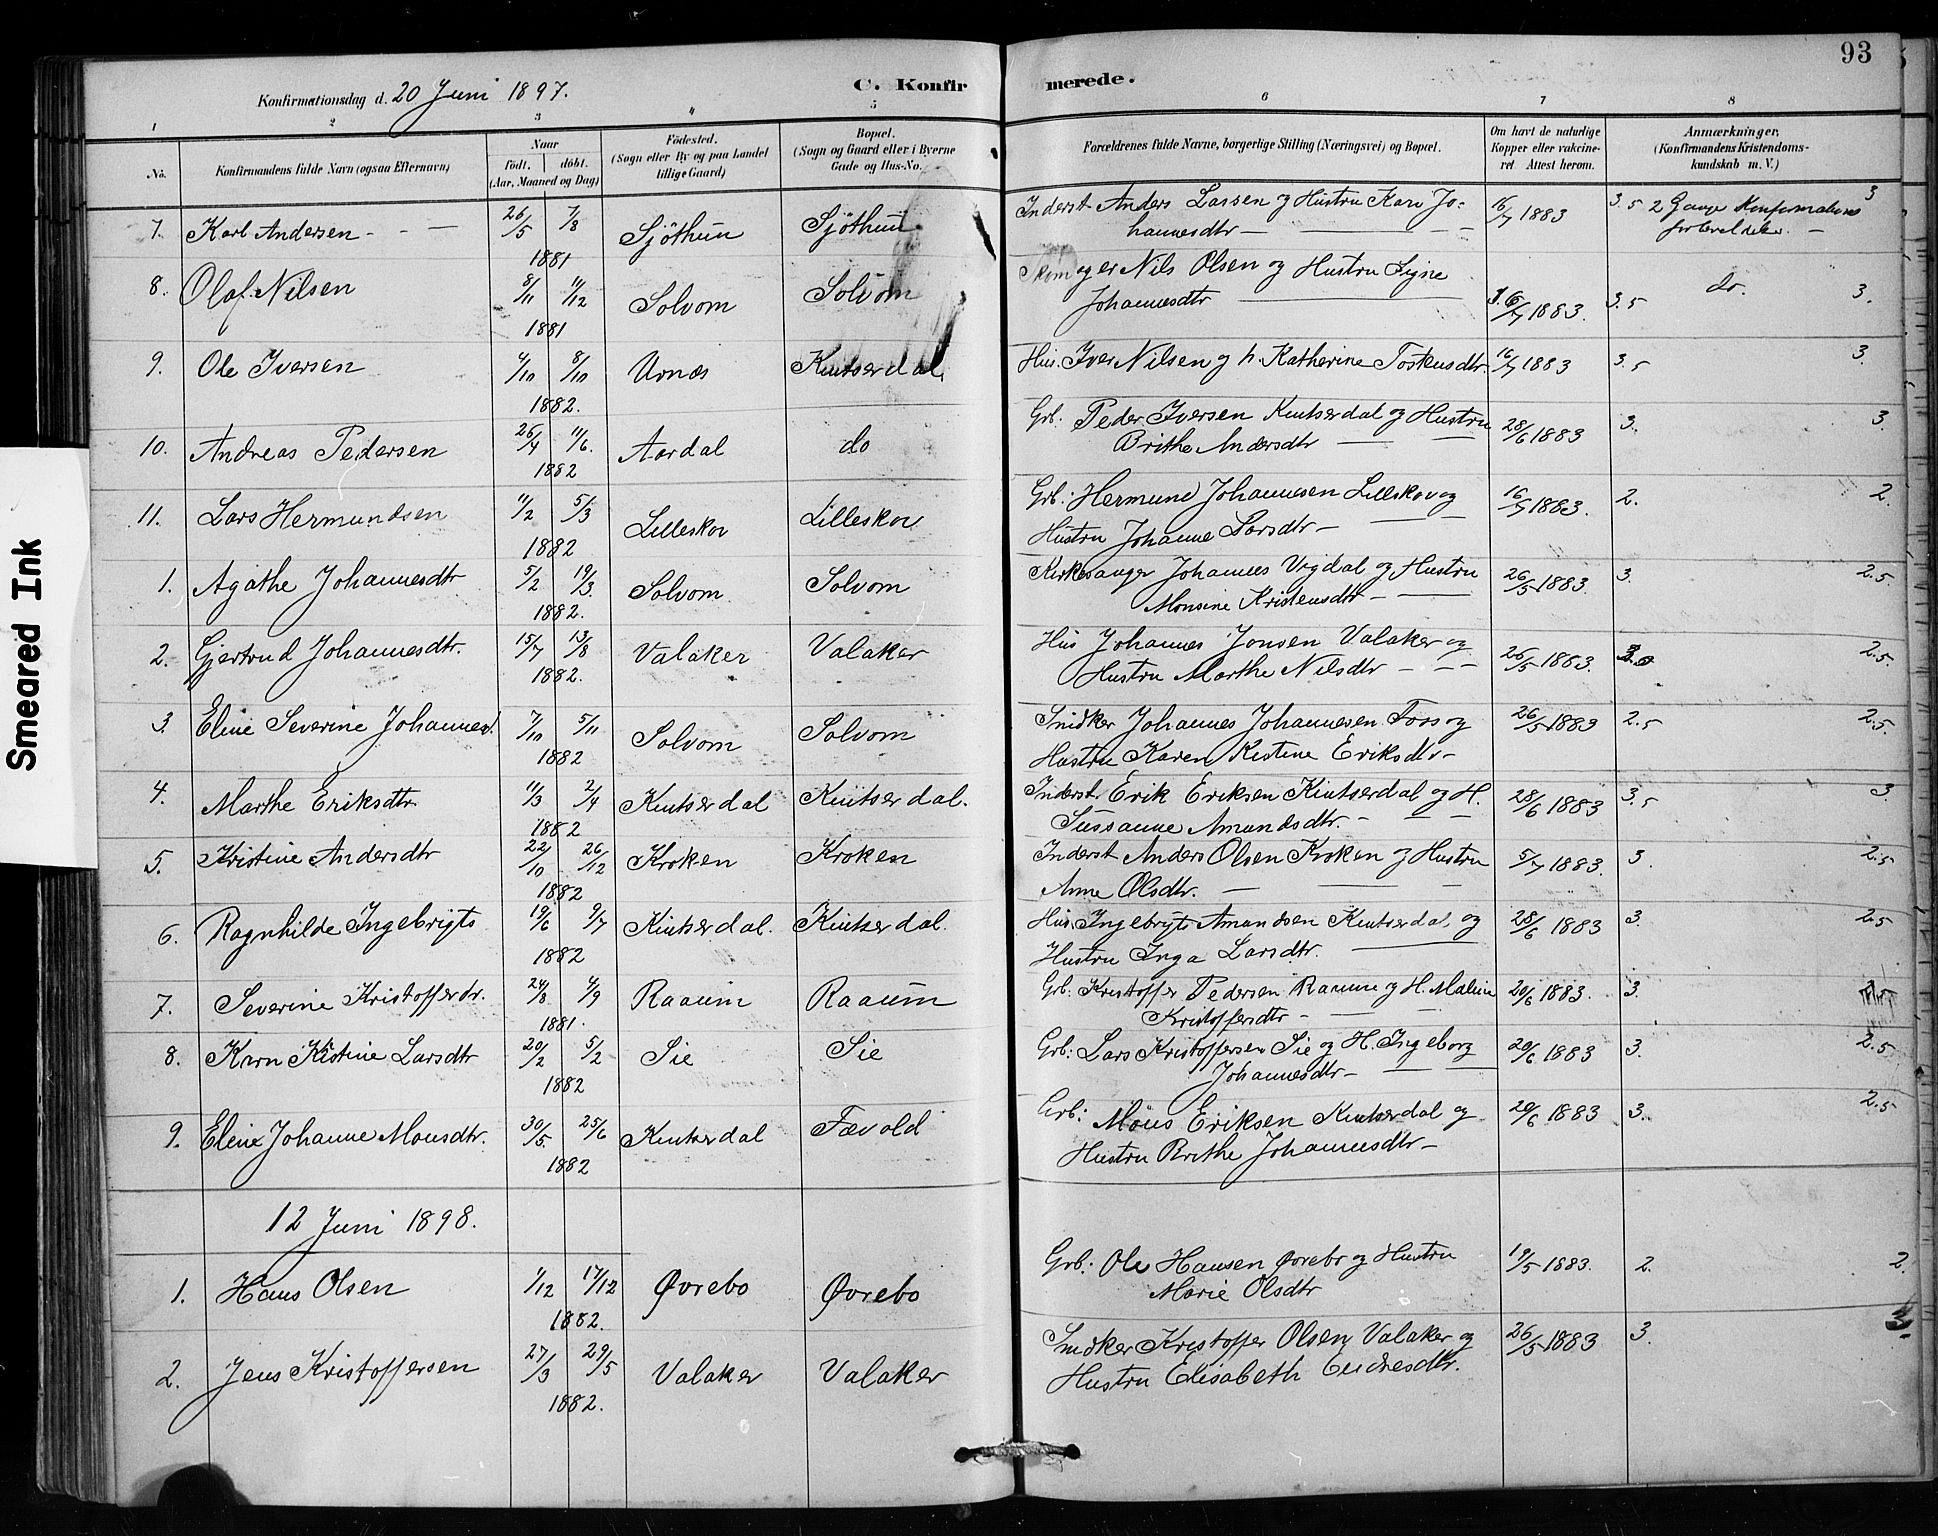 93
Konfirmationsdag d. 20 Juni 1897.
C. Konfirmerede.
1 2 3 4 5 6 7 8
No.
Konfirmandens fulde Navn (ogsaa Efternavn)
Naar
födt. döbt.
(Aar, Maaned og Dag)
Födested.
(Sogn eller By og paa Landet
tillige Gaard)
Bopæl.
(Sogn og Gaard eller i Byerne
Gade og Hus-No.
Forældrenes fulde Navne, borgerlige Stilling (Næringsvei) og Bopæl.
Om havt de naturlige
Kopper eller vakcine-
ret Attest herom.
Anmærkninger,
(Konfirmandens Kristendoms-
kundskab m. V.)
7. Karl Andersen 26/5 7/8 1881 Sjöthun Sjöthun Inderst Anders Lassen og Hustru Kari Jo-
hannesdtr 16/7 1883 3.5 2 Gange 3
8. Olaf Nilsen 8/11 11/12 1881 Solvom Solvom Skomager Nils Olsen og Hustru Sygne
Johannesdtr 16/7 1883. 3.5 do. 3.
9. Ole Iversen 4/10 8/10 1882. Urnæs Kintserdal Hus. Iver Nilsen og h. Katherine Toskusdtr 16/7 1883 3.5 3.
10. Andreas Pedersen 26/4 11/6. 1882 Aardal do Grb. Peder Iversen Kintserdal og Hustru
Brithe Andersdtr 28/6 1883 3. 3
11. Lars Hermundsen 11/2 5/3 1882 Lilleskov Lilleskov Grb: Hermund Johannesen Lilleskov og
Hustru Johanne Larsdtr 16/7 1883. 2. 2.
1. Agathe Johannesdtr 5/2 19/3 1882. Solvom Solvom Kirkesanger Johannes Vigdal og Hustru
Monsine Kristensdtr 26/5 1883. 3. 2.5.
2. Gjertrud Johannesdtr. 15/7 13/8 1882. Valaker Valaker Hus Johannes Jonsen Valaker og
Hustru Marthe Nilsdtr 26/5 1883. 2.5.
3. Eline Severine Johannesd. 7/10 5/11 1882 Solvom Solvom Snidker Johannes Johannesen Foss og
Hustru Karen Kistine Eriksdtr 26/5 1883 2.5 2.5.
4. Marthe Eriksdtr. 11/3 2/4 1882 Kintserdal Kintserdal. Inderst Erik Eriksen Kintserdal og H.
Sussanne Amundsdtr. 28/6 1883 3.5 3.
5. Kristine Andersdtr 22/10 26/12 1882 Kroken Kroken Inderst Anders Olsen Kroken og Hustru
Anne Olsdtr. 5/7 1883. 3. 2.5
6. Ragnhilde Ingebrigts 19/6 9/7 1882 Kintserdal. Kintserdal. Hus. Ingebrigt Amundsen Kintserdal og
Hustru Inga Larsdtr. 28/6 1883 3. 2.5
7. Severine Kristofferdr. 24/8 4/9 1881. Raaum Raaum Grb: Kristoffer Pedersen Raaum og H. Malene
Kristoffersdtr 20/6 1883. 3.
8. Karn Kistine Larsdtr 20/2 5/2 1882 Sie Sie Grb: Lars Kristoffersen Sie og H. Ingeborg
Johannesdtr 20/6 1883 3. 2.5
9. Eline Johanne Monsdtr. 30/5 25/6 1882 Kintserdal Fævold Grb: Mons Eriksen Kintserdal og
Hustru Brithe Johannesdtr 20/6 1883 3. 2.5
12 Juni 1898.
1. Hans Olsen 1/12 17/12 1882. Øvrebo Øvrebo Grb: Ole Hansen Øvrebo og Hustru
Marie Olsdtr 19/5 1883. 2. 2.
2. Jens Kristoffersen 27/3 29/5 1882. Valaker Valaker Snidker Kristoffer Olsen Valaker og
Hustru Elisabeth Eudresdtr. 26/5 1883 3.
Smeared Ink